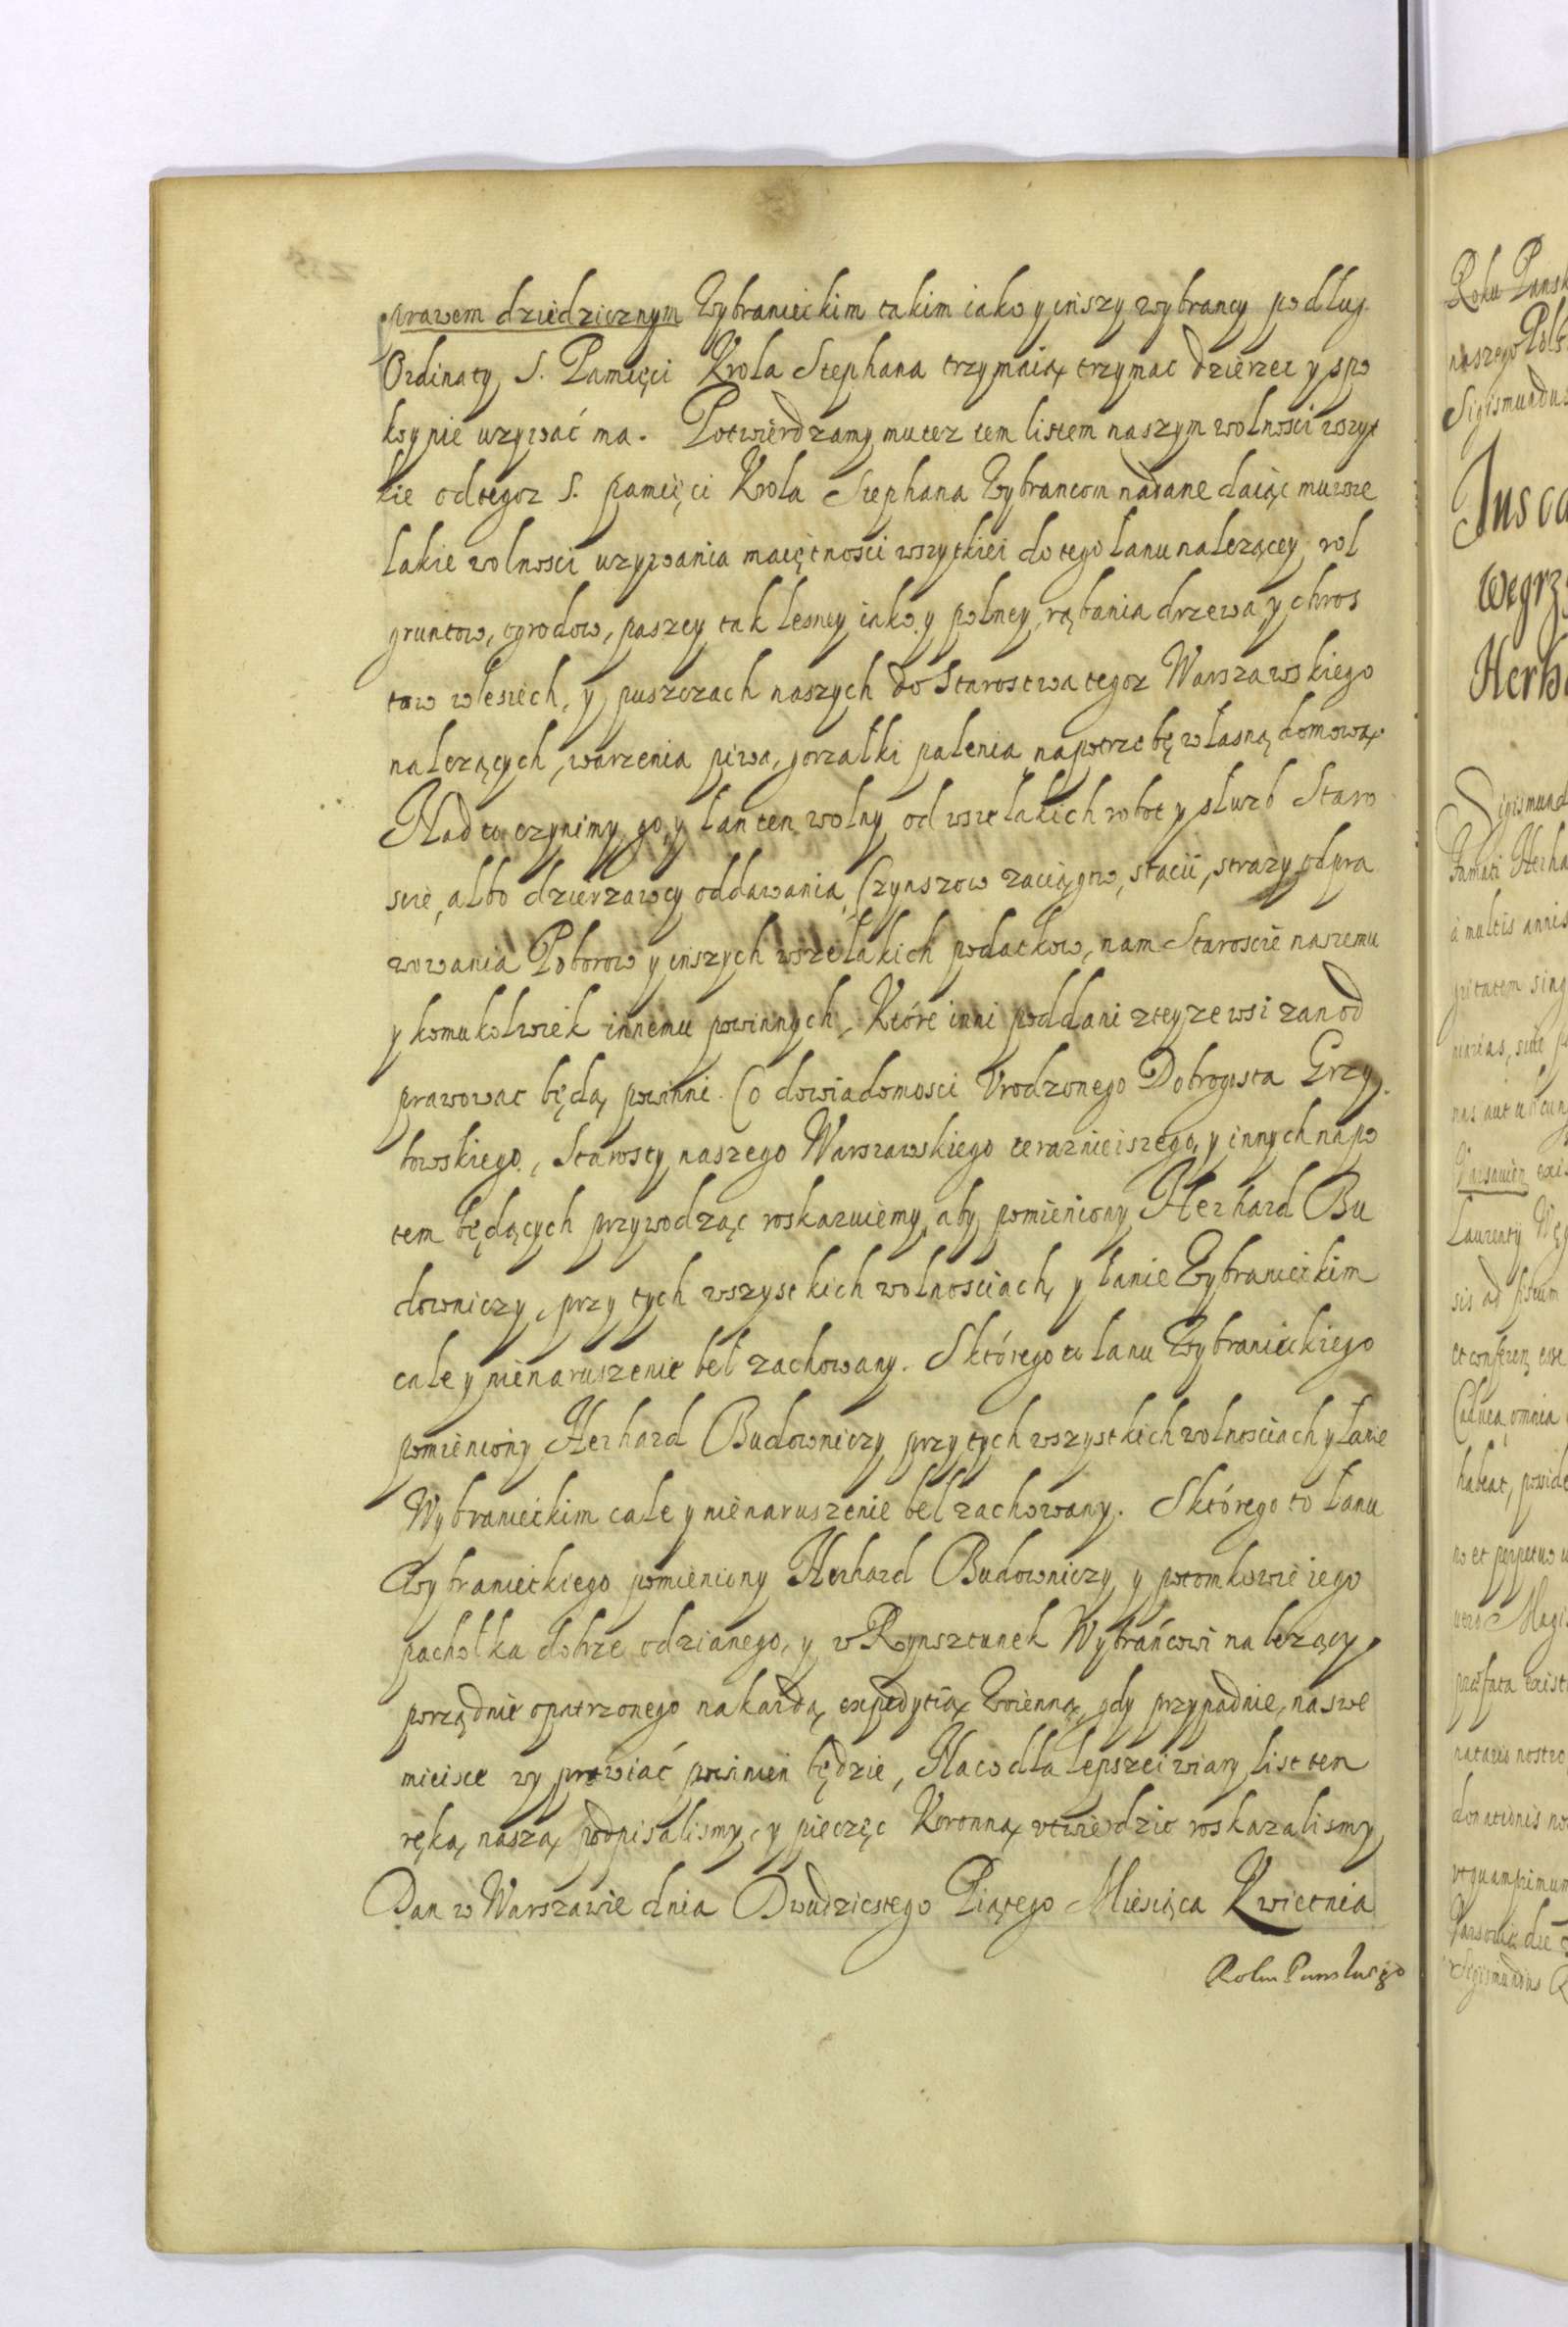 prawem dziedzicznym Wybranieckim takim iako y inszy wybrancy podług
Ordinaty S. Pamięci Krola Stephana trzymaią trzymac dzierzec y spo
koynie uzywać ma. Potwierdzamy mu tez tem listem naszym wolności wszyt
kie od tegoz S. pamięci Krola Stephana Wybrancom nadane daiąc mu wsze
lakie wolności uzywania maiętności wszytkiei do tego łanu nalezącey, rol
gruntow, ogrodow, paszey tak lesney iako y polney, rąbania drzewa, y chros
tow w lesiech, y puszczach naszych do Starostwa tegoz Warszawskiego
nalezących, warzenia piwa, gorzałki palenia na potrzebę własną domową.
Nad to czynimy go, y łan ten wolny od wszelakich robot y słuzb Staro
scie, albo dzierzawcy oddawania, Czynszow zaciągow, stacii, strazy odpra
wowania Poborow y inszych wszelakich podatkow, nam Staroscie naszemu
y komukolwiek innemu powinnych, Które inni poddani z teyze wsi zan od
prawowac będą powinni. Co do wiadomosci Urodzonego Dobrogosta Grzy
bowskiego, Starosty naszego Warszawskiego teraznieiszego, y innych napo
tem będących przywodząc roskazuiemy, aby pomieniony Herhard Bu
downiczy, przy tych wszystkich wolnosciach, y łanie Wybranieckim
cale y nienaruszenie beł zachowany. Sktórego to łanu Wybranieckiego
pomieniony Herhard Budowniczy przy tych wszystkich wolnosciach y łanie
Wybranieckim cale y nienaruszenie beł zachowany. Sktórego to łanu
Wybranieckiego pomieniony Herhard Budowniczy y potomkowie iego
pachołka dobrze odzianego, y w Rynsztunek Wybrańcowi nalezący,
porządnie opatrzonego na kazdą expedytią Woienną, gdy przypadnie, na swe
mieisce wyprawiać powinien będzie, Na co dla lepszei wiary list ten
ręką naszą podpisalismy, y pieczęc Koronną utwierdzic roskazalismy
Dan w Warszawie dnia Dwudziestego Piątego Miesiąca Kwietnia
Roku Panskiego
Roku Pansk
naszego Pols
Sigismundus
Jus ca
Węgrz
Herha
Sigismund
Famati Herha
a multis annis
Laurentij
sis ad fiscum
Caduca, omnia
habeat,
no et perpetuo
Magis
donationis no
Sigismundus R